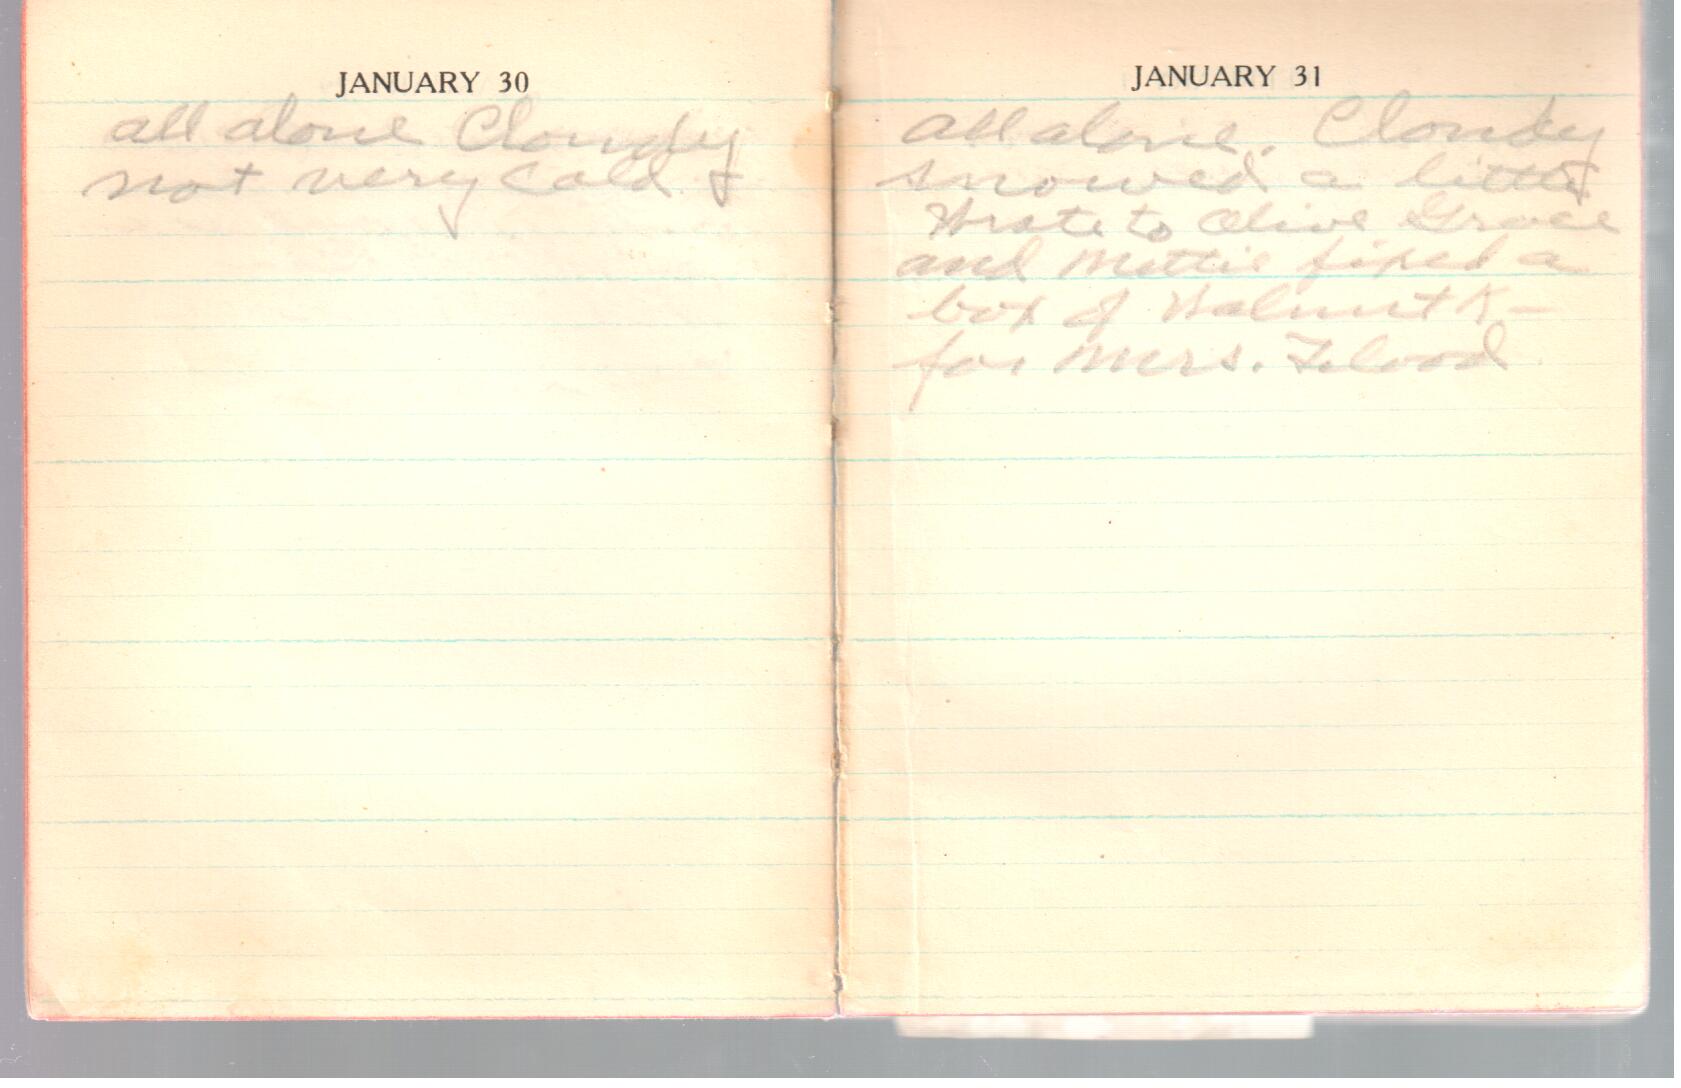 JANUARY 30
all alone Cloudy
not very Cold &
JANUARY 31
all alone. Cloudy
snowed a little
Wrote to Olive Grace
and Mettie fixed a
box of Walnut K-
for Mrs. Flood